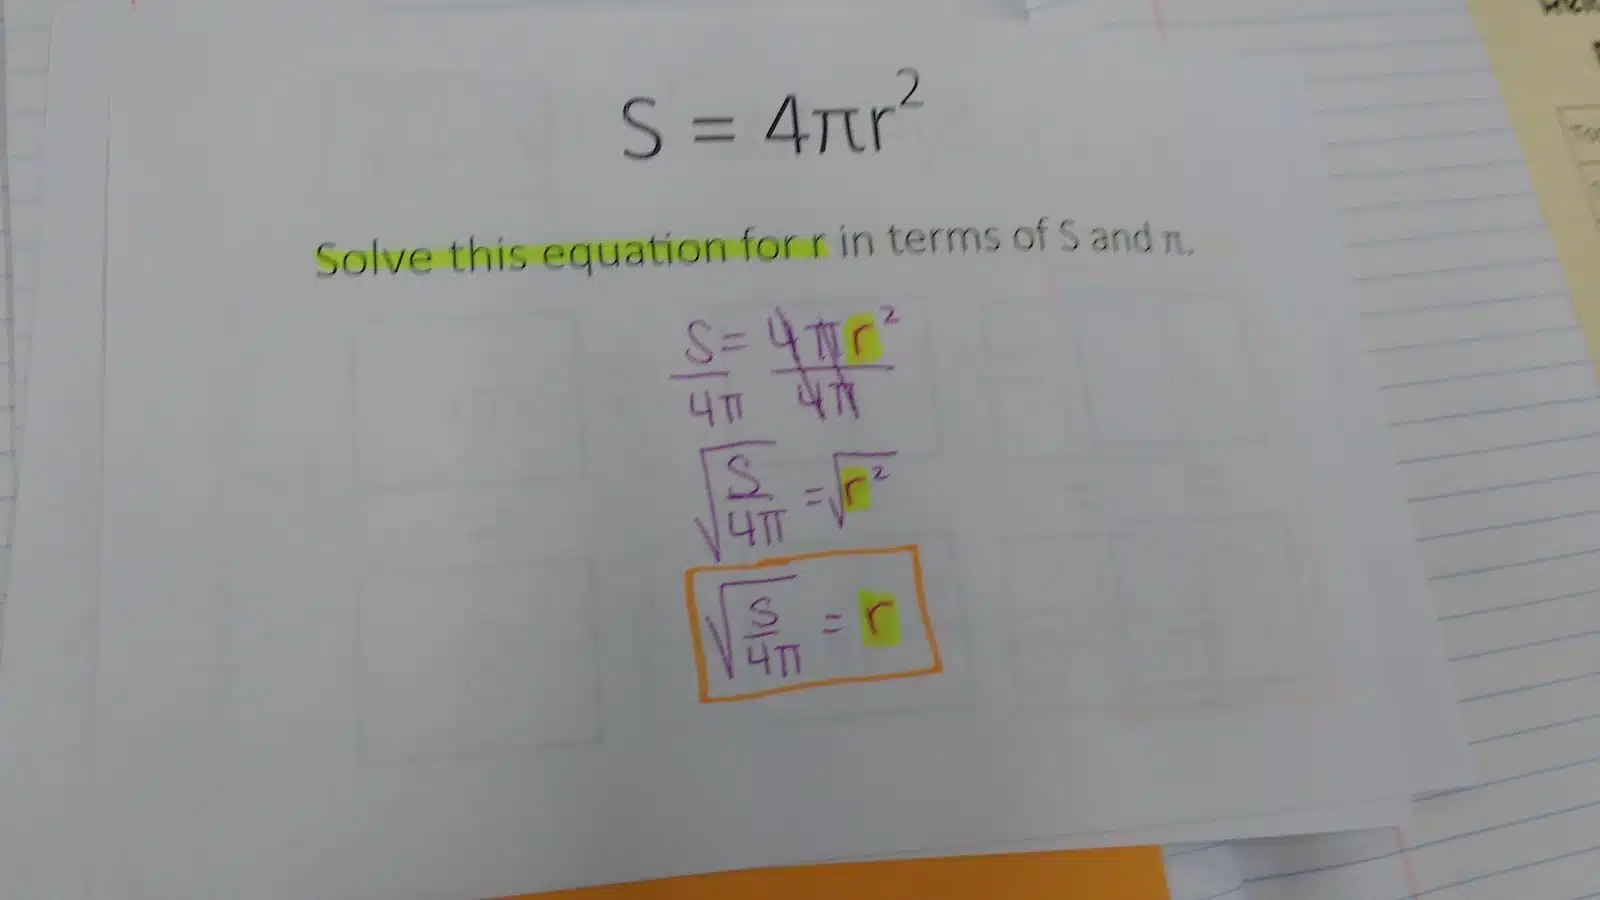 S = 4πr²
Solve this equation for r in terms of S and π.
S = 4πr²
4π 4π
√S/4π = √r²
√S/4π = r